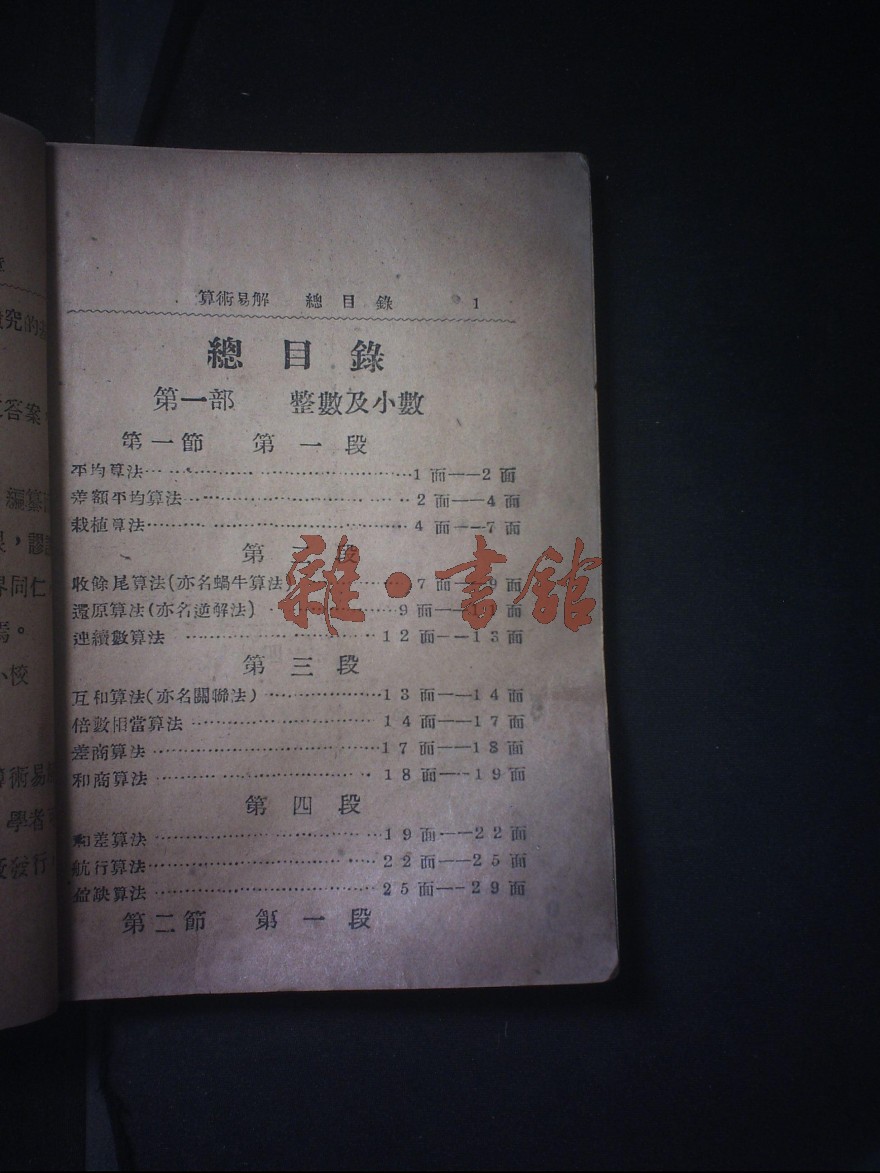 算術易解 總目錄 1
總目錄
第一部 整數及小數
第一節 第一段
平均算法……………………1面——2面
差額平均算法……………………2面——4面
栽植算法……………………4面——7面
第二段
收餘尾算法(亦名蝸牛算法)…………7面——9面
還原算法(亦名逆解法)…………9面——
連續數算法……………………12面——13面
第三段
互和算法(亦名關聯法)……………13面——14面
倍數相當算法……………………14面——17面
差商算法……………………17面——18面
和商算法……………………18面——19面
第四段
和差算法……………………19面——22面
航行算法……………………22面——25面
盈缺算法……………………25面——29面
第二節 第一段
雜·書館
究的
答案
編纂
，謬
界同仁
。
小校
算術易
學者
發行